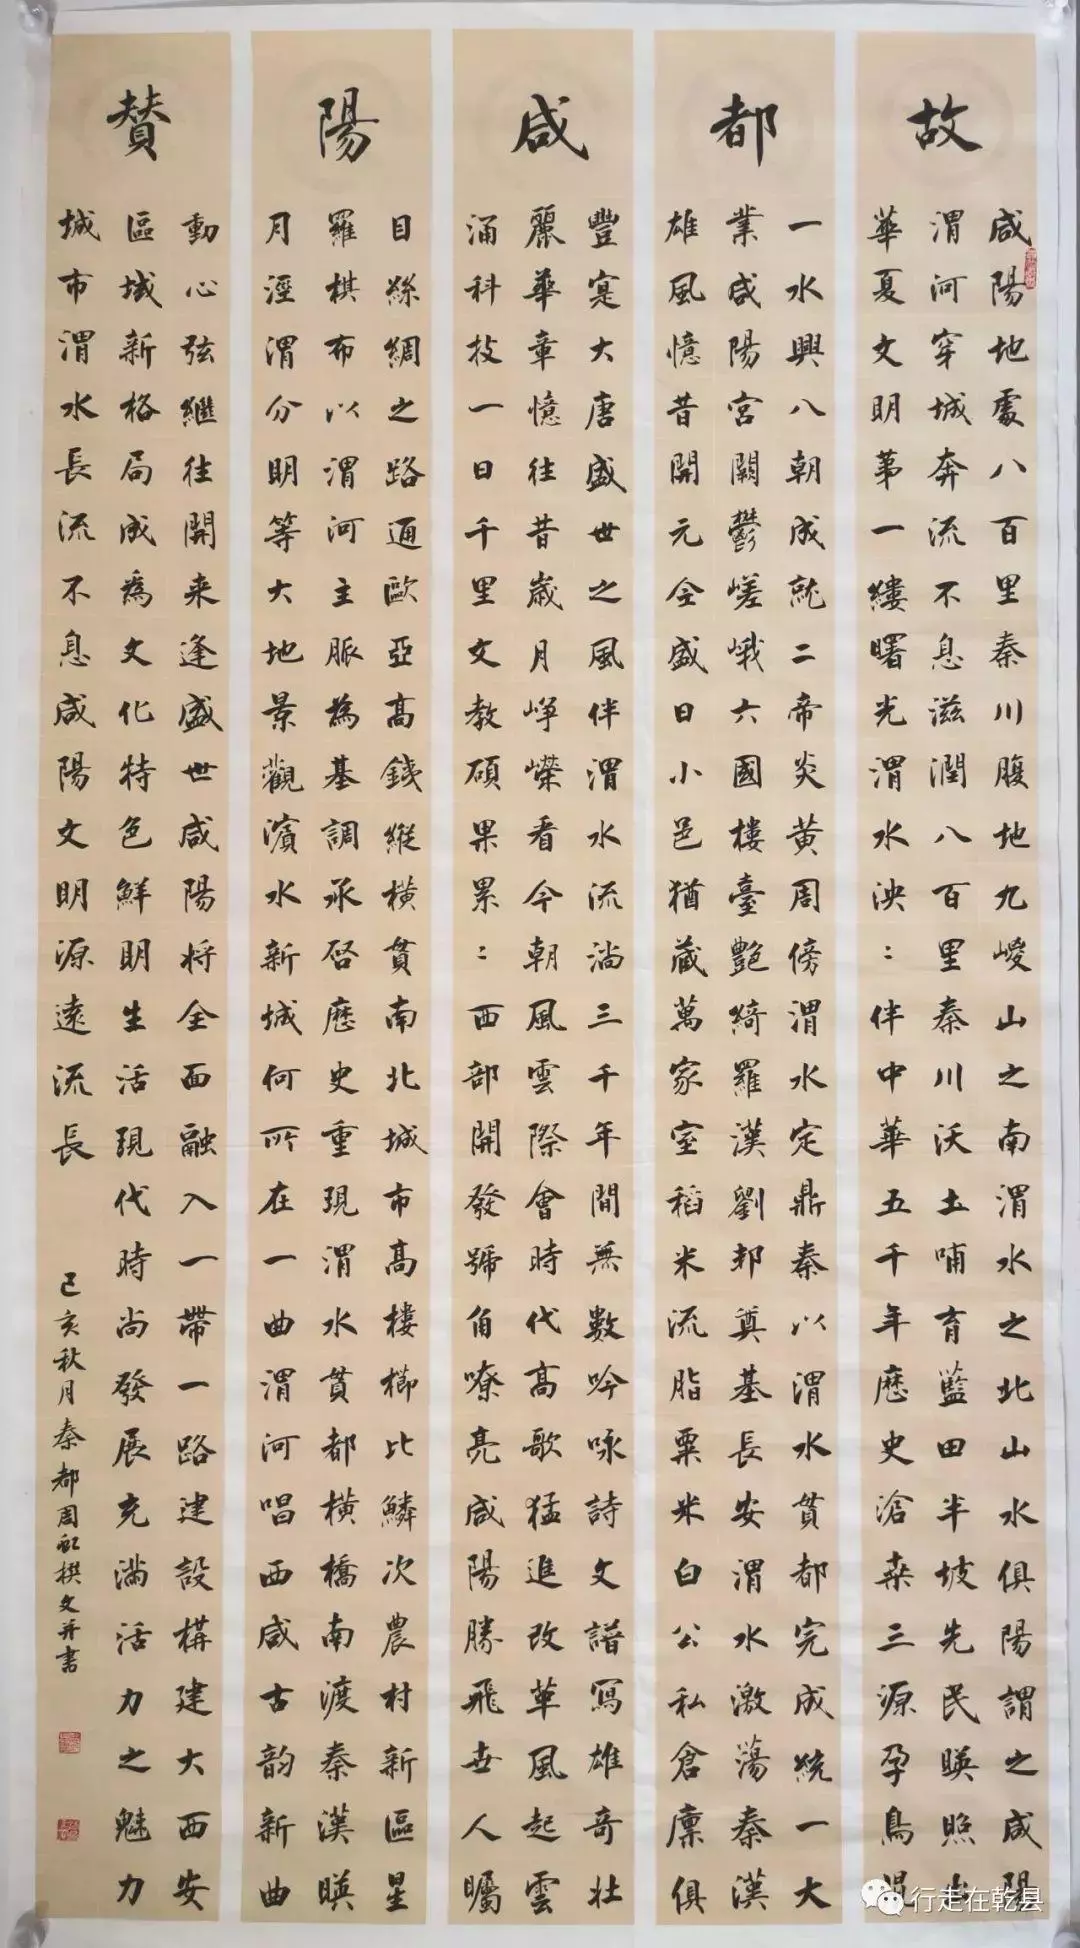 故都咸陽贊
咸陽地處八百里秦川腹地九嵕山之南渭水之北山水俱陽謂之咸陽
渭河穿城奔流不息滋潤八百里秦川沃土哺育藍田半坡先民暎照出
華夏文明第一縷曙光渭水泱〻伴中華五千年歷史滄桑三源孕鳥
一水興八朝成就二帝炎黃周傍渭水定鼎秦以渭水貫都完成統一大
業咸陽宮闕鬱嵯峨六國樓臺艷綺羅漢劉邦奠基長安渭水激蕩秦漢
雄風憶昔開元全盛日小邑猶藏萬家室稻米流脂粟米白公私倉廩俱
豐寔大唐盛世之風伴渭水流淌三千年間無數吟咏詩文譜寫雄奇壯
麗華章憶往昔歲月崢嶸看今朝風雲際會時代高歌猛進改革風起雲
涌科技一日千里文教碩果累〻西部開發號角嘹亮咸陽騰飛世人矚
目絲綢之路通歐亞高鐵縱橫貫南北城市高樓櫛比鱗次農村新區星
羅棋布以渭河主脈為基調承啓歷史重現渭水貫都橫橋南渡秦漢暎
月涇渭分明等大地景觀濱水新城何所在一曲渭河唱西咸古韵新曲
動心弦繼往開來逢盛世咸陽將全面融入一帶一路建設構建大西安
區域新格局成為文化特色鮮明生活現代時尚發展充滿活力之魅力
城市渭水長流不息咸陽文明源遠流長
己亥秋月秦都周虹撰文并書
行走在乾县